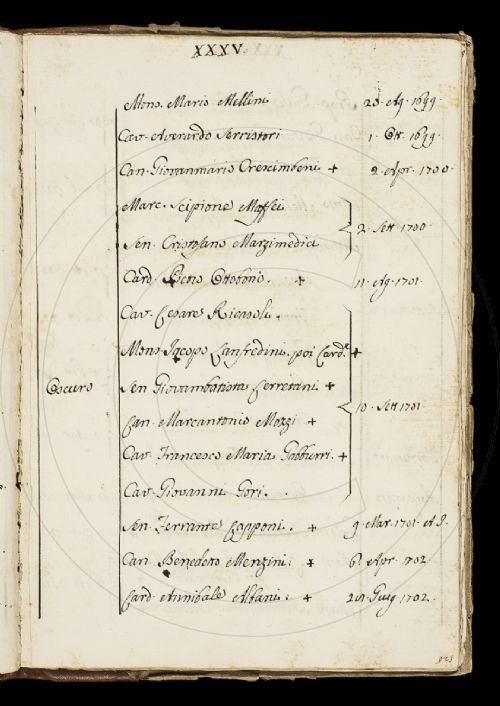 XXXV.
Mons. Mario Mellini 20. Ag. 1699.
Cav. Averardo Serristori 1. Ott. 1699.
Can. Giovanmario Crescimbeni + 2. Apr. 1700.
Marc. Scipione Maffei
2. Sett. 1700.
Sen. Cristofano Marzimedici
Card. Pietro Ottoboni. + 11. Ag. 1701.
Cav. Cesare Ricasoli.
Mons. Jacopo Lanfredini. poi Card.e +
Oscuro
Sen. Giovambatista Cerretani +
10. Sett. 1701.
Can. Marcantonio Mozzi +
Cav. Francesco Maria Gabburri. +
Cav. Giovanni Gori.
Sen. Ferrante Capponi. + 9. Mar. 1701.
Can. Benedeto Menzini: + 6. Apr. 1702.
Card. Annibale Albani: + Giug. 1702.